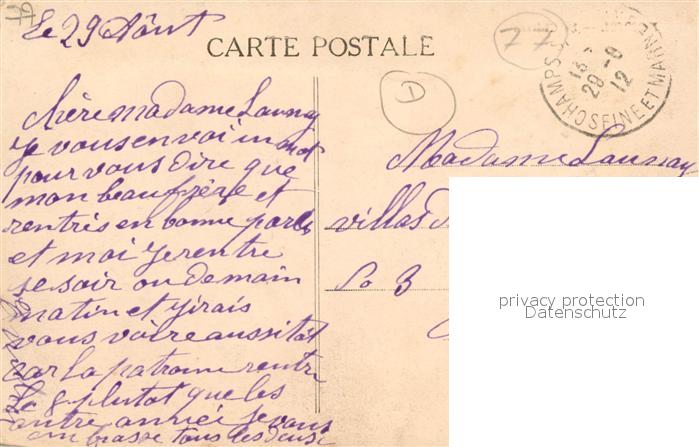 Le 29 Aôut
CARTE POSTALE
77
D
CHAMPS
13
29 - 8
12
SEINE ET MARNE
chère madame Launay
je vous envoi un mot
pour vous dire que
mon beau frère et
rentrés en bonne
et moi je rentre
se soir ou demain
matin et jirais
vous voire aussitôt
car la patronne rentre
le 8 plutot que les
autre année je vous
embrasse tous les deux
Madame Launay
villas
No 3
privacy protection
Datenschutz